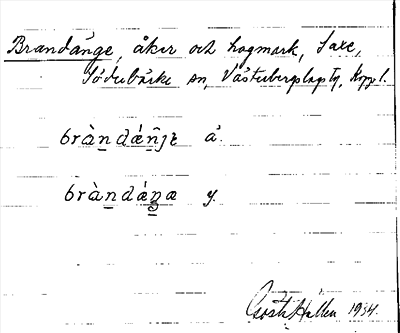 Brandänge, åker och hagmark, Saxe,
Söderbärke sn, Västerbergslags tg, Kopp l.
bràndǽnjɛ å.
bràndáŋæ y.
Gösta Hallén 1934.